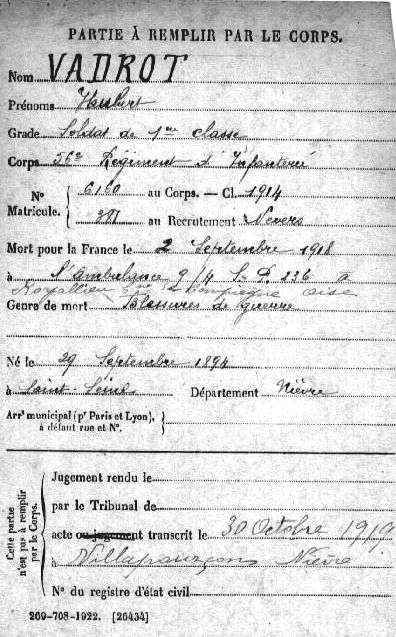 PARTIE À REMPLIR PAR LE CORPS.
Nom VADROT
Prénoms Humbert
Grade Soldat de 1ère classe
Corps 56e Régiment d'Infanterie
N° Matricule. 6160 au Corps. — Cl. 1914
au Recrutement Nevers
Mort pour la France le 2 Septembre 1918
à l'ambulance 9/4 S.P. 226 à
Royallieu Compiègne Oise
Genre de mort Blessures de guerre
Né le 29 Septembre 1894
à Saint-Seine Département Nièvre
Arrt municipal (pr Paris et Lyon), à défaut rue et N°.
Cette partie n'est pas à remplir par le Corps.
Jugement rendu le
par le Tribunal de
acte ou jugement transcrit le 30 Octobre 1919
à Villapourçon Nièvre
N° du registre d'état civil
269-708-1922. [26434]